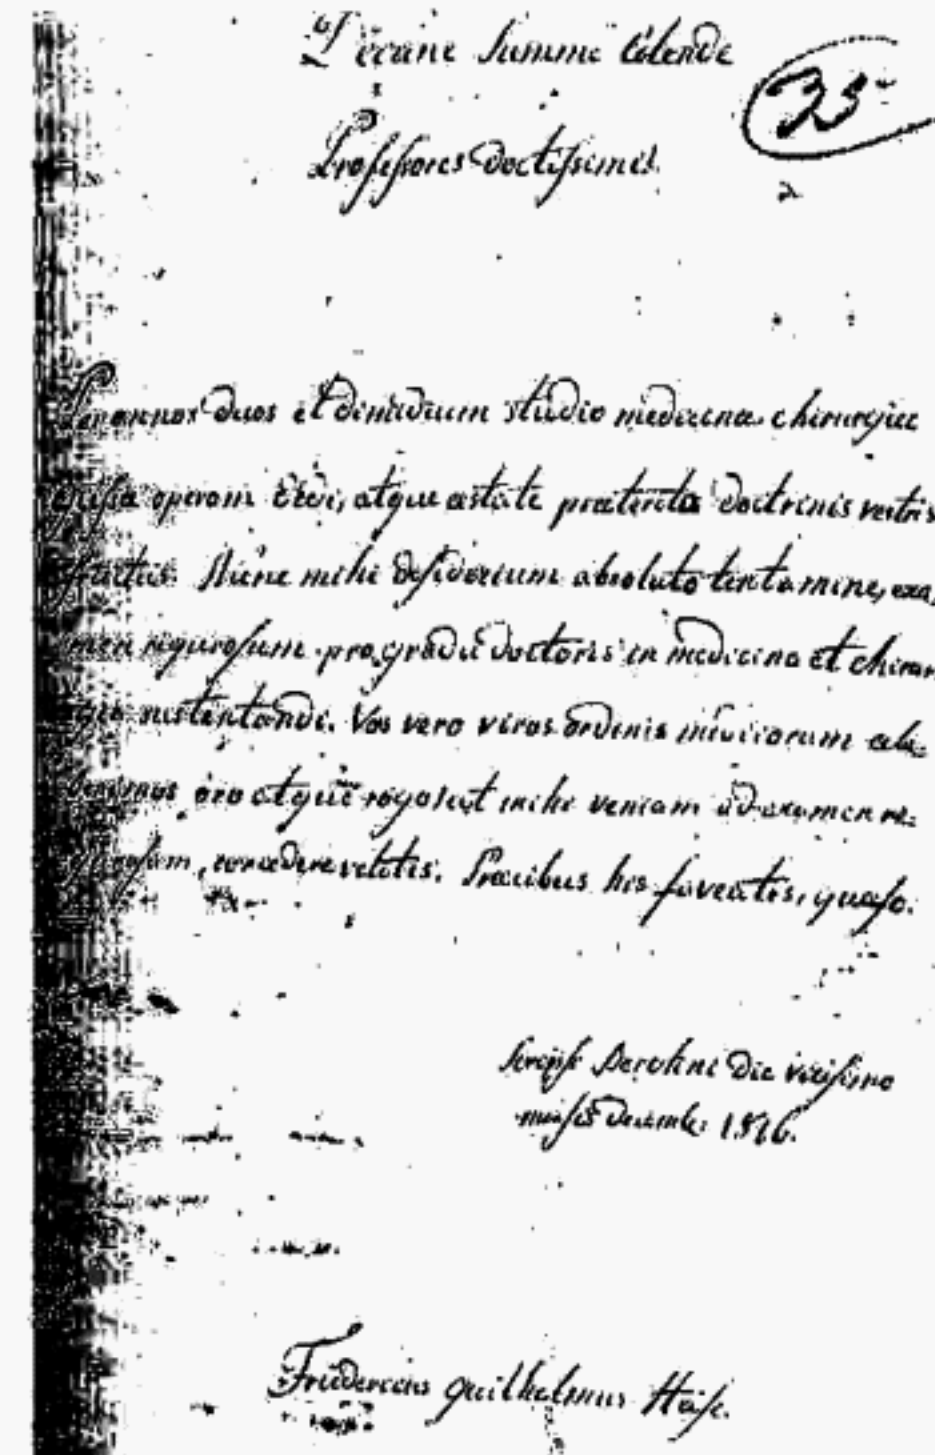 Decane summe Colende
35
Professores doctissimi!
Per annos duos et dimidium studio medicinae chirurgiae
operam dedi, atque aestate praeterita doctrinis vestris
fructus. Nunc mihi desiderium absoluto tentamine, exa,
men rigurosum pro gradu doctoris in medicina et chirur,
sustentandi. Vos vero viros ordinis medicorum cele-
berrimos oro atque rogo, ut mihi veniam ad examen ri-
gurosum, concedere velitis. Precibus his faveatis, quaeso.
Scripsi Berolini die vicesimo
menses decembr. 1816.
Fridericus Guilhelmus Hase.